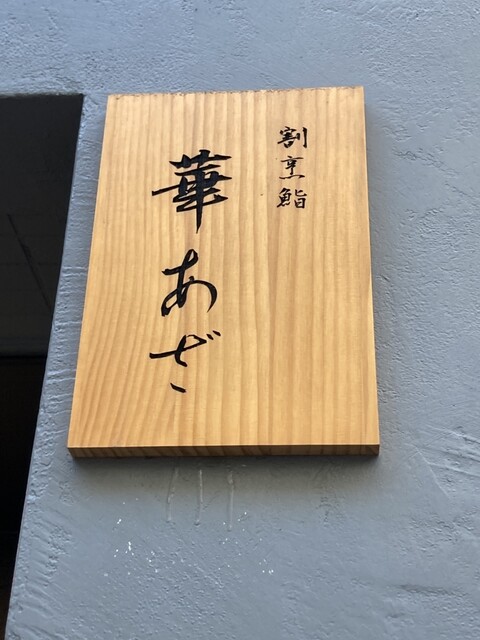 割烹鮨
華あざ